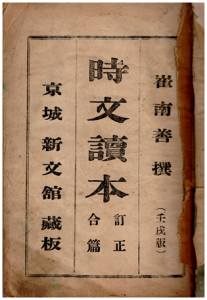 崔南善 撰
（壬戌版）
時文讀本
訂正
合篇
京城 新文舘 藏板